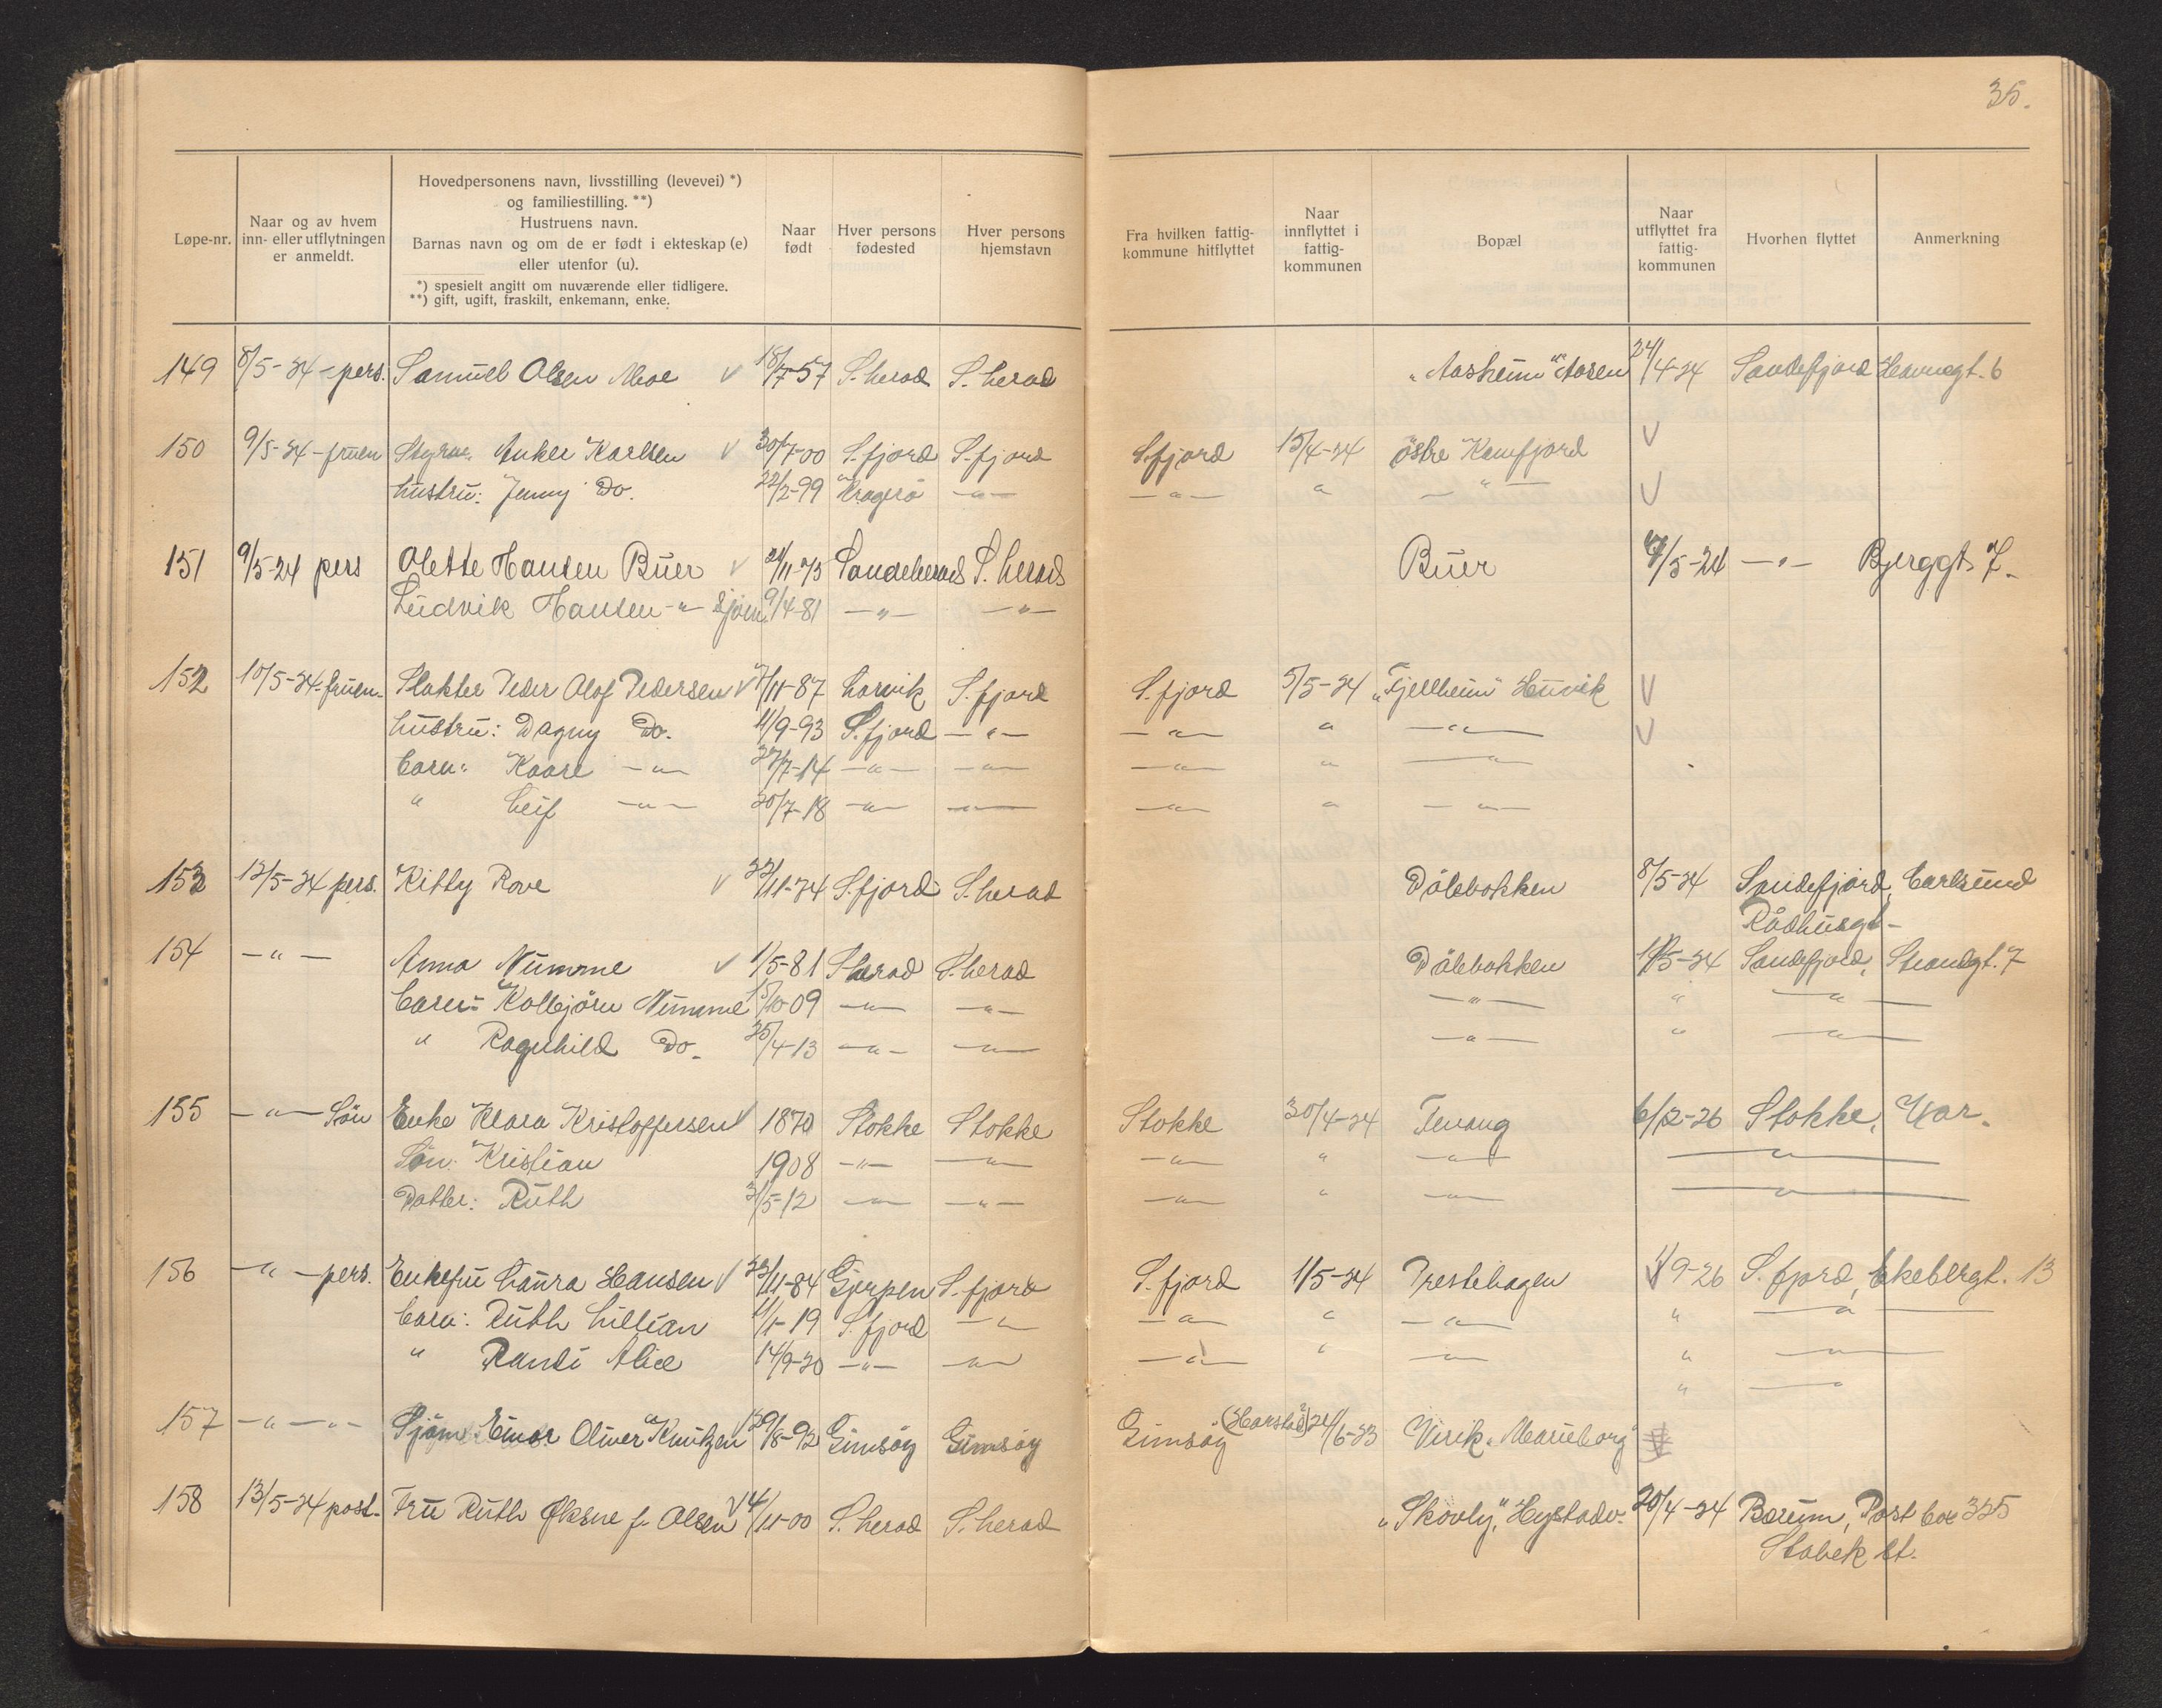 35.
Løpe-nr.
Naar og av hvem
inn- eller utflytningen
er anmeldt.
Hovedpersonens navn, livsstilling (levevei) *)
og familiestilling. **)
Hustruens navn.
Barnas navn og om de er født i ekteskap (e)
eller utenfor (u).
*) spesielt angitt om nuværende eller tidligere.
**) gift, ugift, fraskilt, enkemann, enke.
Naar
født
Hver persons
fødested
Hver persons
hjemstavn
Fra hvilken fattig-
kommune hitflyttet
Naar
innflyttet i
fattig-
kommunen
Bopæl
Naar
utflyttet fra
fattig-
kommunen
Hvorhen flyttet
Anmerkning
149 8/5-24 - pers. Samuel Olsen Moe √ 18/7-57 S. herad S. herad "Aasheim" Aasen 24/4-24 Sandefjord Havnegt. 6
150 9/5-24 - fruen Styrm. Anker Karlsen √ 30/7-00 S. fjord S. fjord S. fjord 15/4-24 östre Kamfjord √
hustru: Jenny Do. 22/2-99 Kragerö -"- -"- " -"- √
151 9/5-24 pers Olette Hansen Buer √ 21/11-75 Sandeherad S. herad Buer 7/5-24 -"- Bjerggt. 7.
Ludvik Hansen -"- Sjöm. 9/4-81 -"- -"-
152 10/5-24 - fruen - Slakter Peder Olaf Pedersen √ 7/11-87 Larvik S. fjord S. fjord 5/5-24 "Fjellheim" Huvik √
hustru: Dagny Do. 11/9-93 S. fjord -"- -"- " -"- √
barn: Kaare -"- 27/7-14 -"- -"- -"- " -"-
" Leif -"- 20/7-18 -"- -"- -"- " -"-
153 12/5-24 pers. Kitty Rove √ 22/11-74 S. fjord S. herad Dölebakken 8/5-24 Sandefjord, Carlsund
Rådhusgt-
154 -"- Anna Numme √ 1/5-81 S herad S. herad Dölebakken 1/5-24 Sandefjord, Strandgt. 7
barn: Kolbjörn Numme 15/10-09 -"- -"- -"- " -"-
" Ragnhild Do. 25/4-13 -"- -"- -"- " -"-
155 -"- Sön Enke Klara Kristoffersen √ 1870 Stokke Stokke Stokke 30/4-24 Tenang 6/2-26 Stokke, Var.
Sön: Kristian 1908 -"- -"- -"- " -"- -"-
Datter: Ruth 31/5-12 -"- -"- -"- " -"- -"-
156 -"- pers. Enkefru Laura Hansen √ 22/11-84 Gjerpen S. fjord S. fjord 1/5-24 Prestehagen 1/9-26 S. fjord, Ekebergt. 13
barn: Ruth Lillian 11/1-19 S. fjord -"- -"- " -"- " -"-
" Randi Alice 14/9-20 -"- -"- -"- " -"- " -"-
" -"-
157 -"- -"- Sjöm. Einar Oliver Knutzen 29/8-92 Gimsöy Gimsöy Gimsöy (Harstad?) 24/6-23 Virik "Marieborg"
158 13/5-24 post. Fru Ruth Øksne f. Olsen √ 4/11-00 S. herad S. herad "Skovly," Hystadv. 20/4-24 Bærum, Post box 325
Stabek st.